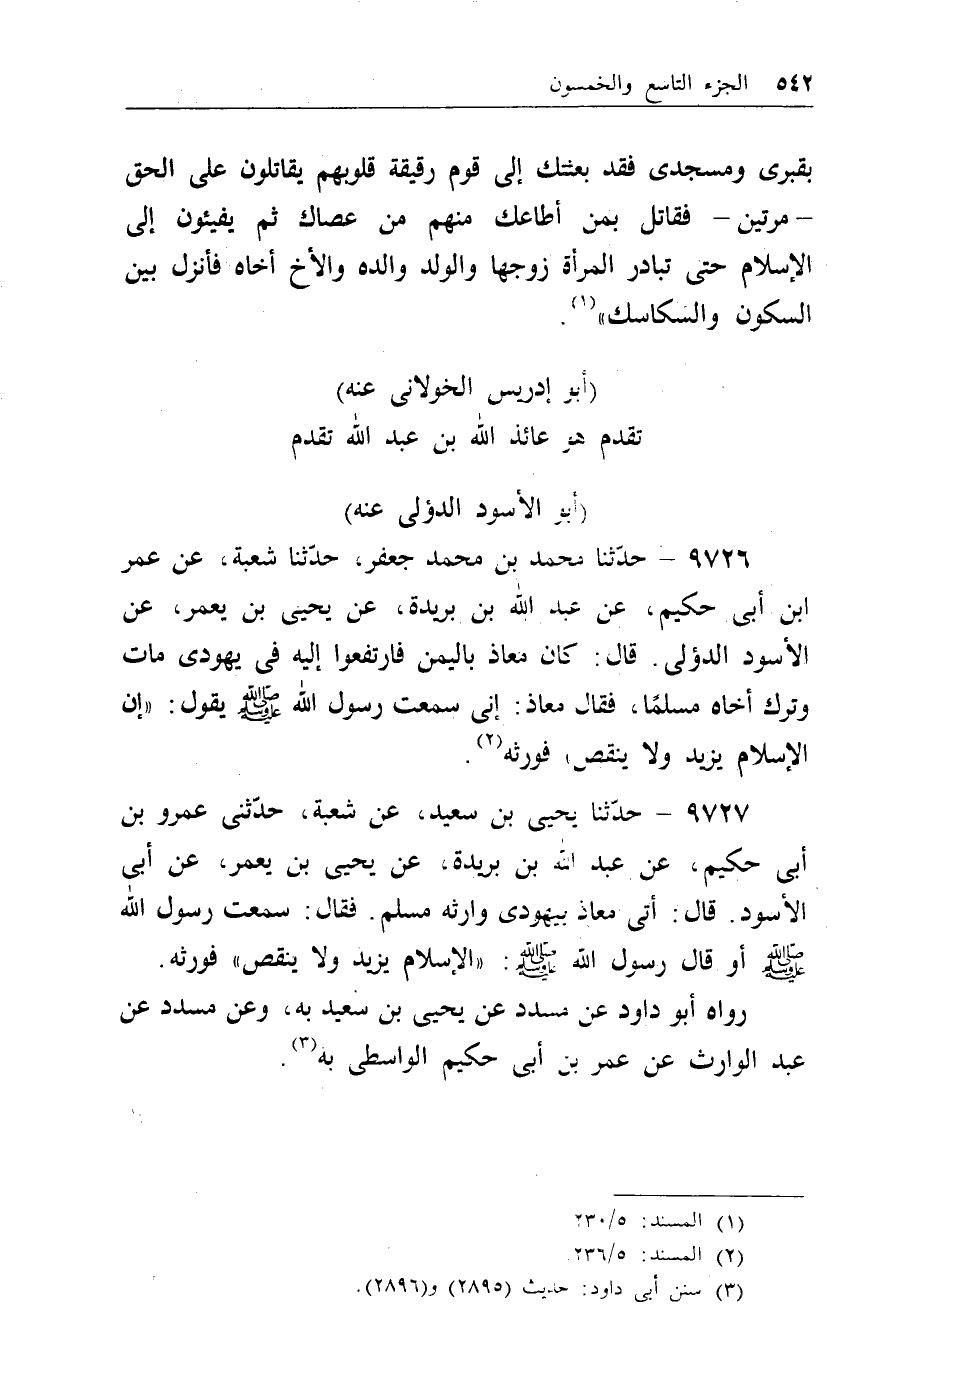 ٥٤٢ الجزء التاسع والخمسون
بقبرى ومسجدى فقد بعثتك إلى قوم رقيقة قلوبهم يقاتلون على الحق
- مرتين - فقاتل بمن أطاعك منهم من عصاك ثم يفيئون إلى
الإسلام حتى تبادر المرأة زوجها والولد والده والأخ أخاه فأنزل بين
السكون والسكاسك»(١).
(أبو إدريس الخولانى عنه)
تقدم هو عائذ الله بن عبد الله تقدم
(أبو الأسود الدؤلى عنه)
٩٧٢٦ - حدّثنا محمد بن محمد جعفر، حدّثنا شعبة، عن عمر
ابن أبى حكيم، عن عبد الله بن بريدة، عن يحيى بن يعمر، عن
الأسود الدؤلى. قال: كان معاذ باليمن فارتفعوا إليه فى يهودى مات
وترك أخاه مسلمًا، فقال معاذ: إنى سمعت رسول الله ﷺ يقول: «إن
الإسلام يزيد ولا ينقص، فورثه(٢).
٩٧٢٧ - حدّثنا يحيى بن سعيد، عن شعبة، حدّثنى عمرو بن
أبى حكيم، عن عبد الله بن بريدة، عن يحيى بن يعمر، عن أبى
الأسود. قال: أتى معاذ بيهودى وارثه مسلم. فقال: سمعت رسول الله
ﷺ أو قال رسول الله ﷺ: «الإسلام يزيد ولا ينقص» فورثه.
رواه أبو داود عن مسدد عن يحيى بن سعيد به، وعن مسدد عن
عبد الوارث عن عمر بن أبى حكيم الواسطى به(٣).
(١) المسند: ٢٣٠/٥
(٢) المسند: ٢٣٦/٥
(٣) سنن أبى داود: حديث (٢٨٩٥) و(٢٨٩٦).